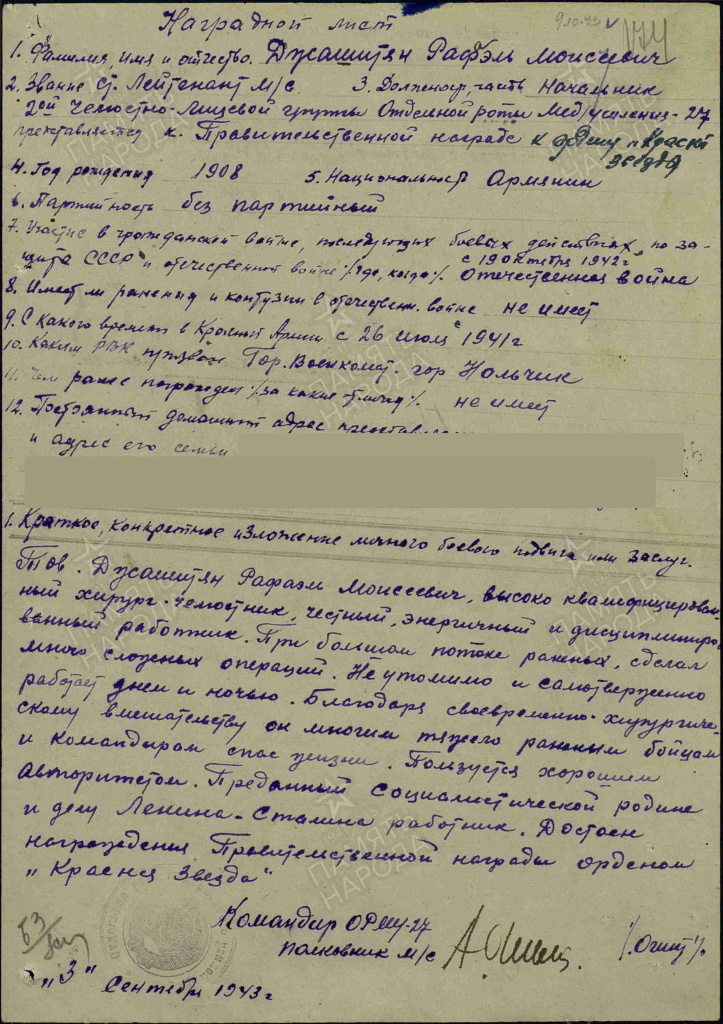 9.10.43
174
Наградной лист
1. Фамилия, имя и отчество. Джашитян Рафаэль Моисеевич
2. Звание ст. Лейтенант м/с 3. Должность, часть Начальник
2ой Челюстно-Лицевой группы Отдельной роты Мед/усиления-27
представляется к Правительственной награде к ордену "Красная
звезда"
4. Год рождения 1908 5. Национальность Армянин
6. Партийность без партийный
7. Участие в гражданской войне, последующих боевых действиях по за-
щите СССР и отечественной войне /где, когда/. с 19 октября 1942 г. Отечественная война
8. Имеет ли ранения и контузии в отечествен. войне не имеет
9. С какого времени в Красной Армии с 26 июля 1941 г
10. Каким РВК призван Гор. Военкомат. гор Нальчик
11. Чем ранее награжден /за какие отличия/. не имеет
12. Постоянный домашний адрес представ
и адрес его семьи
1. Краткое, конкретное изложение личного боевого подвига или заслуг.
Тов. Джашитян Рафаэл Моисеевич, высоко квалифицирован-
ный хирург-челюстник, честный, энергичный и дисциплиниро-
ванный работник. При большом потоке раненых, сделал
много сложных операций. Неутомимо и самотверженно
работает днем и ночью. Благодаря своевременно-хирургиче-
скому вмешательству он многим тяжело раненым бойцам
и командирам спас жизни. Пользуется хорошим
авторитетом. Преданный социалистической родине
и делу Ленина-Сталина работник. Достоен
награждения Правительственной награды орденом
"Красная Звезда"
Командир ОРМУ-27
полковник м/с
"3" Сентября 1943 г
ПАМЯТЬ
НАРОДА